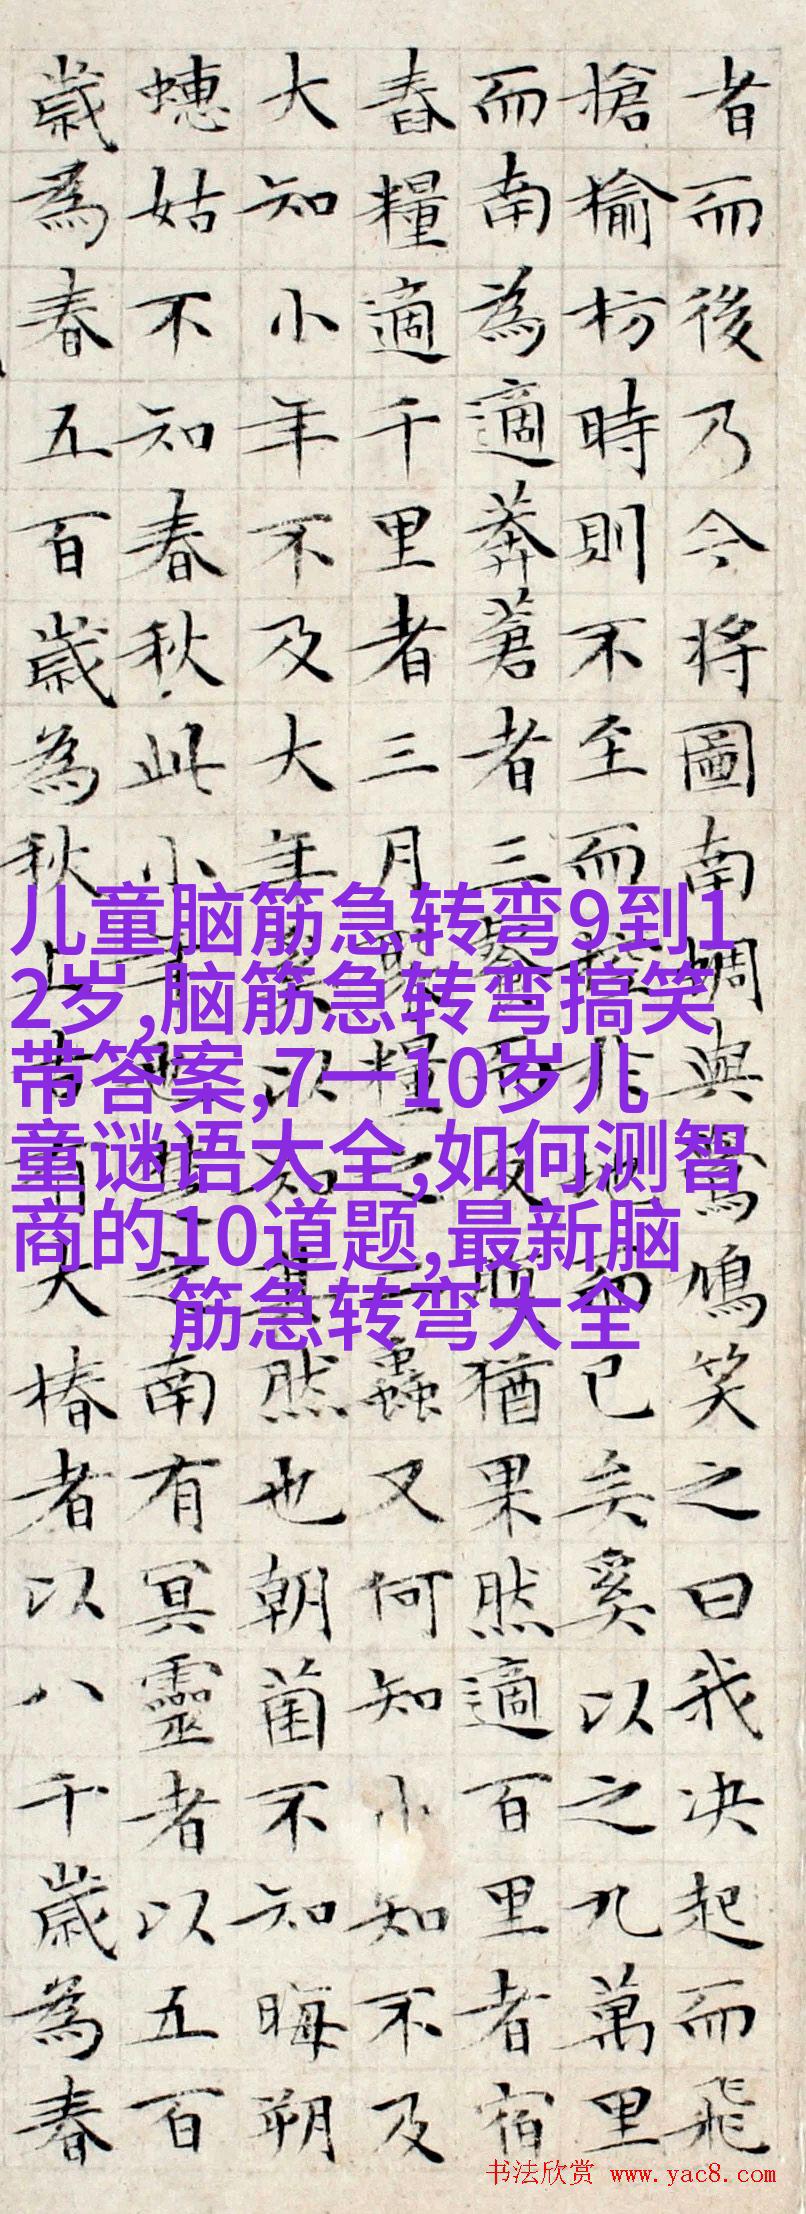 者而後乃今将圖南蜩與鷽鳩笑之曰我决起而飛
搶榆枋時則不至而控於地而已矣奚以之九萬里
而南為適莽蒼者三飡而反腹猶果然適百里者宿
舂糧適千里者三月聚糧之二蟲又何知小知不及
大知小年不及大年奚以知其然也朝菌不知晦朔
蟪姑不知春秋此小年也楚之南有冥靈者以五百
歲為春五百歲為秋上古有大椿者以八千歲為春
儿童脑筋急转弯9到1
2岁,脑筋急转弯搞笑
带答案,7一10岁儿
童谜语大全,如何测智
商的10道题,最新脑
筋急转弯大全
书法欣赏 www.yac8.com